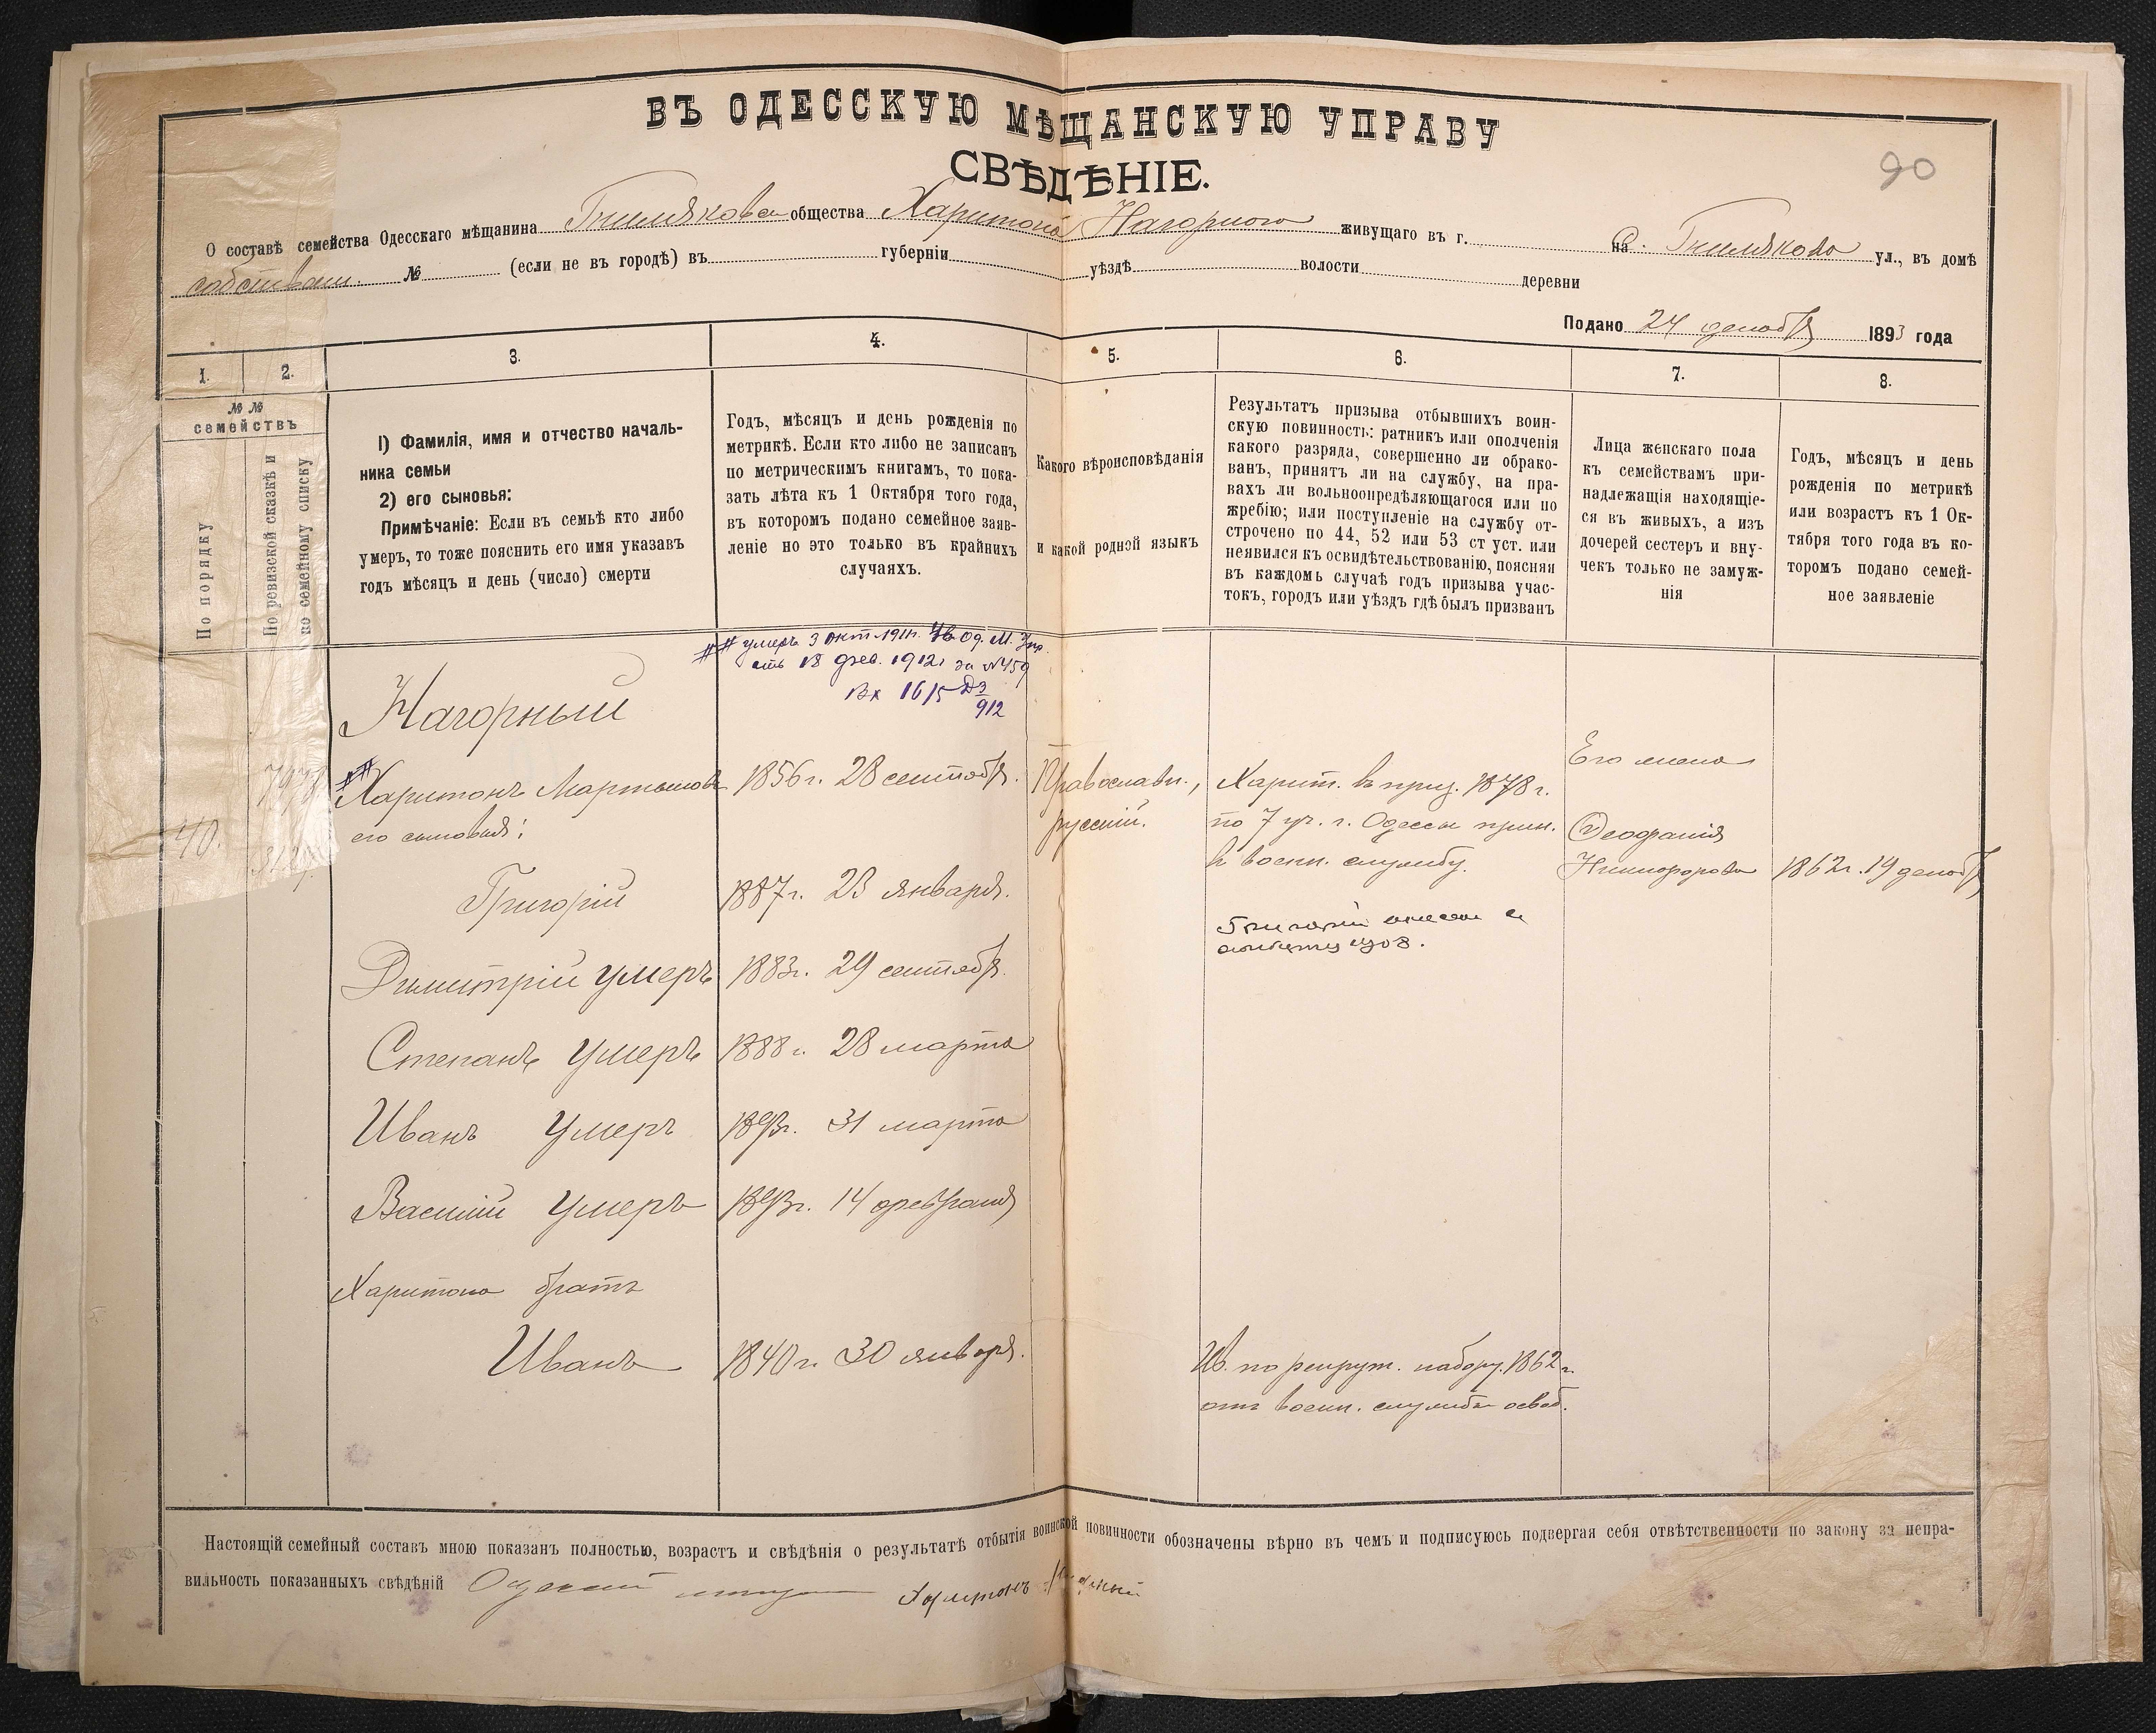 90
ВЪ ОДЕССКУЮ МѢЩАНСКУЮ УПРАВУ
СВѢДѢНІЕ.
О составѣ семейства Одесскаго мѣщанина Гнилякова общества Харитона Нагорного живущаго въ г. на с. Гниляково ул., въ домѣ
собствен. № (если не въ городѣ) въ губерніи уѣздѣ волости деревни
Подано 24 декабря 1893 года
1.
2.
3.
4.
5.
6.
7.
8.
№ №
семействъ
По порядку
По ревизской сказкѣ и
по семейному списку
1) Фамилія, имя и отчество началь-
ника семьи
2) его сыновья:
Примѣчаніе: Если въ семьѣ кто либо
умеръ, то тоже пояснить его имя указавъ
годъ мѣсяцъ и день (число) смерти
Годъ, мѣсяцъ и день рожденія по
метрикѣ. Если кто либо не записанъ
по метрическимъ книгамъ, то пока-
зать лѣта къ 1 Октября того года,
въ которомъ подано семейное заяв-
леніе но это только въ крайнихъ
случаяхъ.
Какого вѣроисповѣданія
и какой родной языкъ
Результатъ призыва отбывшихъ воин-
скую повинность: ратникъ или ополченія
какого разряда, совершенно ли обрако-
ванъ, принятъ ли на службу, на пра-
вахъ ли вольноопредѣляющагося или по
жребію; или поступленіе на службу от-
строчено по 44, 52 или 53 ст уст. или
неявился къ освидѣтельствованію, поясняя
въ каждомъ случаѣ годъ призыва учас-
токъ, городъ или уѣздъ гдѣ былъ призванъ
Лица женскаго пола
къ семействамъ при-
надлежащія находящіе-
ся въ живыхъ, а изъ
дочерей сестеръ и вну-
чекъ только не замуж-
нія
Годъ, мѣсяцъ и день
рожденія по метрикѣ
или возрастъ къ 1 Ок-
тября того года въ ко-
торомъ подано семей-
ное заявленіе
## умеръ 3 окт. 1911г. Од. М. Упр.
отъ 18 фев. 1912г за №459
Вх 1615
912
Нагорный
## Харитонъ Мартыновъ 1856г. 28 сентябр. Православн., Харит. въ приз. 1878г. Его жена
его сыновья: русскій. по 7 уч. г. Одессы прин. Феофанія
40.
въ воен. службу. Никифорова 1862г. 19 декабр
Григорій 1887г. 23 января.
Григорій
Димитрій умеръ 1883г. 29 сентябр.
Степанъ умеръ 1888г. 28 марта
Иванъ умеръ 1893г. 31 марта
Василій умеръ 1893г. 14 февраля
Харитона братъ
Иванъ 1840г. 30 январ. Ив. по рекрут. набору 1862г.
отъ воен. службы освоб.
Настоящій семейный составъ мною показанъ полностью, возрастъ и свѣдѣнія о результатѣ отбытія воинской повинности обозначены вѣрно въ чемъ и подписуюсь подвергая себя отвѣтственности по закону за непра-
вильность показанныхъ свѣдѣній Одескій Харитонъ Нагорный